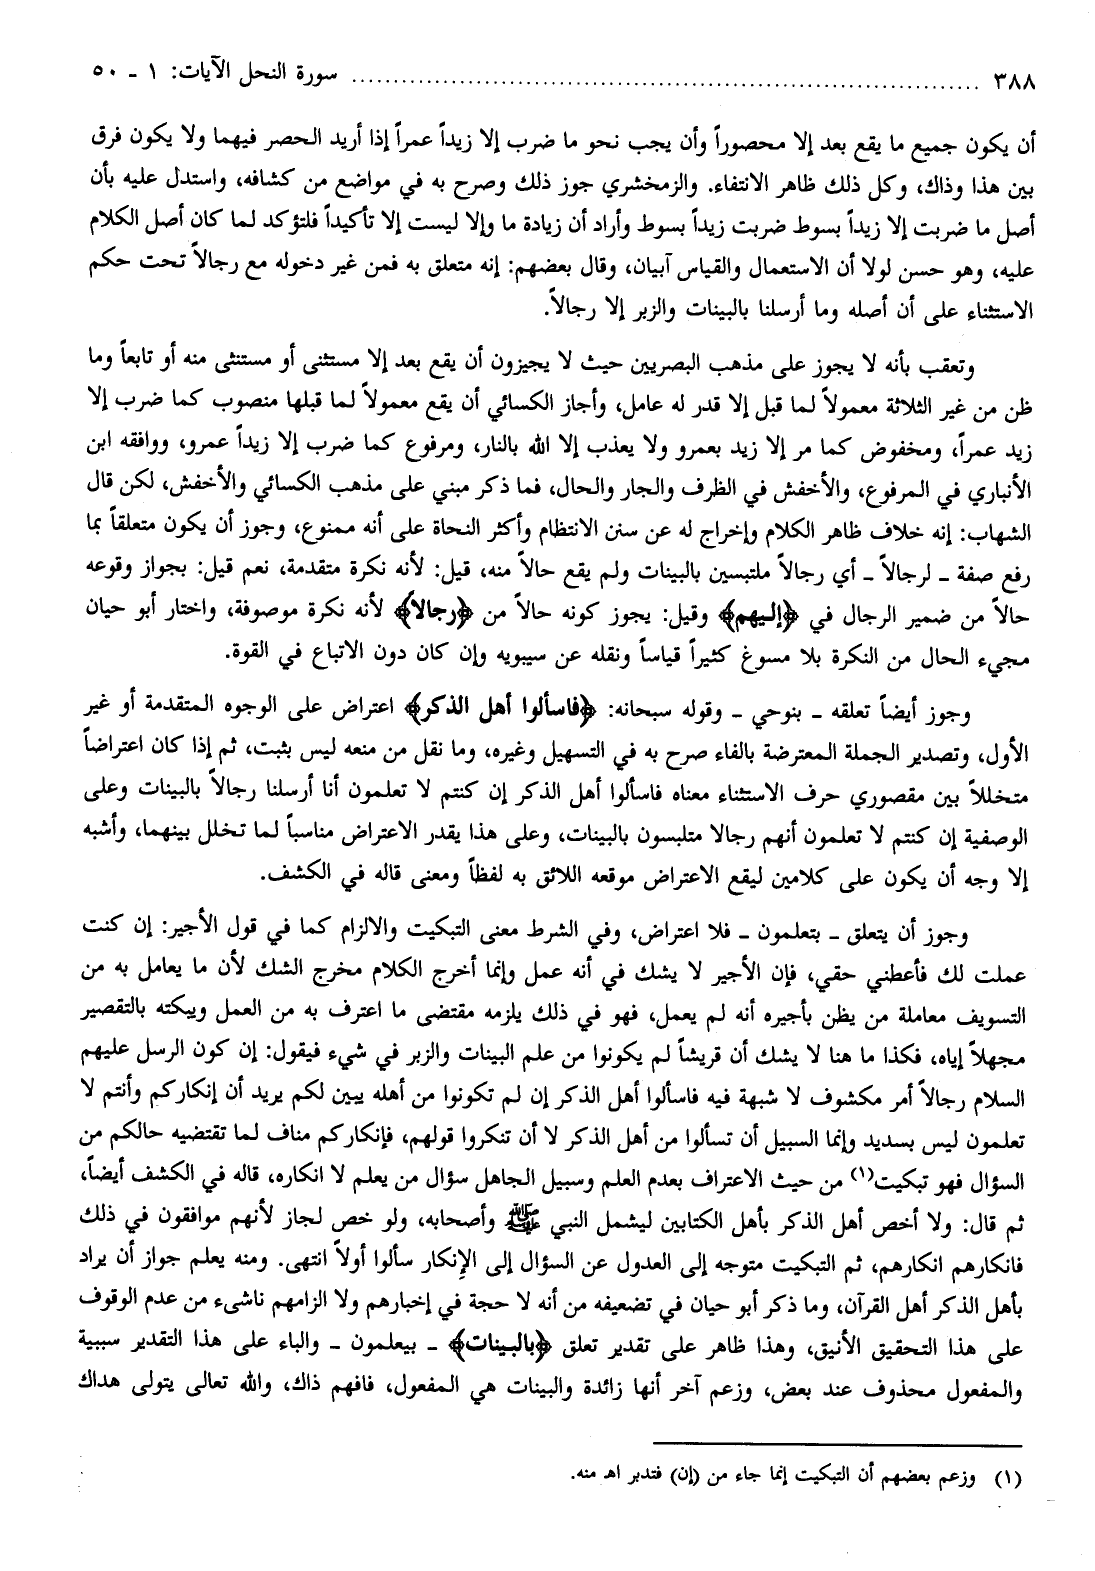 ٣٨٨ ........................................ سورة النحل الآيات: ١ ـ ٥٠
أن يكون جميع ما يقع بعد إلا محصوراً وأن يجب نحو ما ضرب إلا زيداً عمراً إذا أريد الحصر فيهما ولا يكون فرق
بين هذا وذاك، وكل ذلك ظاهر الانتفاء. والزمخشري جوز ذلك وصرح به في مواضع من كشافه، واستدل عليه بأن
أصل ما ضربت إلا زيداً بسوط ضربت زيداً بسوط وأراد أن زيادة ما وإلا ليست إلا تأكيداً فلتؤكد لما كان أصل الكلام
عليه، وهو حسن لولا أن الاستعمال والقياس آبيان، وقال بعضهم: إنه متعلق به فمن غير دخوله مع رجالاً تحت حكم
الاستثناء على أن أصله وما أرسلنا بالبينات والزبر إلا رجالاً.
وتعقب بأنه لا يجوز على مذهب البصريين حيث لا يجيزون أن يقع بعد إلا مستثنى أو مستنثى منه أو تابعاً وما
ظن من غير الثلاثة معمولاً لما قبل إلا قدر له عامل، وأجاز الكسائي أن يقع معمولاً لما قبلها منصوب كما ضرب إلا
زيد عمراً، ومخفوض كما مر إلا زيد بعمرو ولا يعذب إلا الله بالنار، ومرفوع كما ضرب إلا زيداً عمرو، ووافقه ابن
الأنباري في المرفوع، والأخفش في الظرف والجار والحال، فما ذكر مبني على مذهب الكسائي والأخفش، لكن قال
الشهاب: إنه خلاف ظاهر الكلام وإخراج له عن سنن الانتظام وأكثر النحاة على أنه ممنوع، وجوز أن يكون متعلقاً بما
رفع صفة ـ لرجالاً ـ أي رجالاً ملتبسين بالبينات ولم يقع حالاً منه، قيل: لأنه نكرة متقدمة، نعم قيل: بجواز وقوعه
حالاً من ضمير الرجال في ﴿إليهم﴾ وقيل: يجوز كونه حالاً من ﴿رجالا﴾ لأنه نكرة موصوفة، واختار أبو حيان
مجيء الحال من النكرة بلا مسوغ كثيراً قياساً ونقله عن سيبويه وإن كان دون الاتباع في القوة.
وجوز أيضاً تعلقه ـ بنوحي ـ وقوله سبحانه: ﴿فاسألوا أهل الذكر﴾ اعتراض على الوجوه المتقدمة أو غير
الأول، وتصدير الجملة المعترضة بالفاء صرح به في التسهيل وغيره، وما نقل من منعه ليس بثبت، ثم إذا كان اعتراضاً
متخللاً بين مقصوري حرف الاستثناء معناه فاسألوا أهل الذكر إن كنتم لا تعلمون أنا أرسلنا رجالاً بالبينات وعلى
الوصفية إن كنتم لا تعلمون أنهم رجالا متلبسون بالبينات، وعلى هذا يقدر الاعتراض مناسباً لما تخلل بينهما، وأشبه
إلا وجه أن يكون على كلامين ليقع الاعتراض موقعه اللائق به لفظاً ومعنى قاله في الكشف.
وجوز أن يتعلق ـ بتعلمون ـ فلا اعتراض، وفي الشرط معنى التبكيت والالزام كما في قول الأجير: إن كنت
عملت لك فأعطني حقي، فإن الأجير لا يشك في أنه عمل وإنما أخرج الكلام مخرج الشك لأن ما يعامل به من
التسويف معاملة من يظن بأجيره أنه لم يعمل، فهو في ذلك يلزمه مقتضى ما اعترف به من العمل ويبكته بالتقصير
مجهلاً إياه، فكذا ما هنا لا يشك أن قريشاً لم يكونوا من علم البينات والزبر في شيء فيقول: إن كون الرسل عليهم
السلام رجالاً أمر مكشوف لا شبهة فيه فاسألوا أهل الذكر إن لم تكونوا من أهله يبين لكم يريد أن إنكاركم وأنتم لا
تعلمون ليس بسديد وإنما السبيل أن تسألوا من أهل الذكر لا أن تنكروا قولهم، فإنكاركم مناف لما تقتضيه حالكم من
السؤال فهو تبكيت(١) من حيث الاعتراف بعدم العلم وسبيل الجاهل سؤال من يعلم لا انكاره، قاله في الكشف أيضاً،
ثم قال: ولا أخص أهل الذكر بأهل الكتابين ليشمل النبي ﷺ وأصحابه، ولو خص لجاز لأنهم موافقون في ذلك
فانكارهم انكارهم، ثم التبكيت متوجه إلى العدول عن السؤال إلى الإنكار سألوا أولاً انتهى. ومنه يعلم جواز أن يراد
بأهل الذكر أهل القرآن، وما ذكر أبو حيان في تضعيفه من أنه لا حجة في إخبارهم ولا الزامهم ناشىء من عدم الوقوف
على هذا التحقيق الأنيق، وهذا ظاهر على تقدير تعلق ﴿بالبينات﴾ ـ بيعلمون ـ والباء على هذا التقدير سببية
والمفعول محذوف عند بعض، وزعم آخر أنها زائدة والبينات هي المفعول، فافهم ذاك، والله تعالى يتولى هداك
(١) وزعم بعضهم أن التبكيت إنما جاء من (إن) فتدبر اهـ منه.